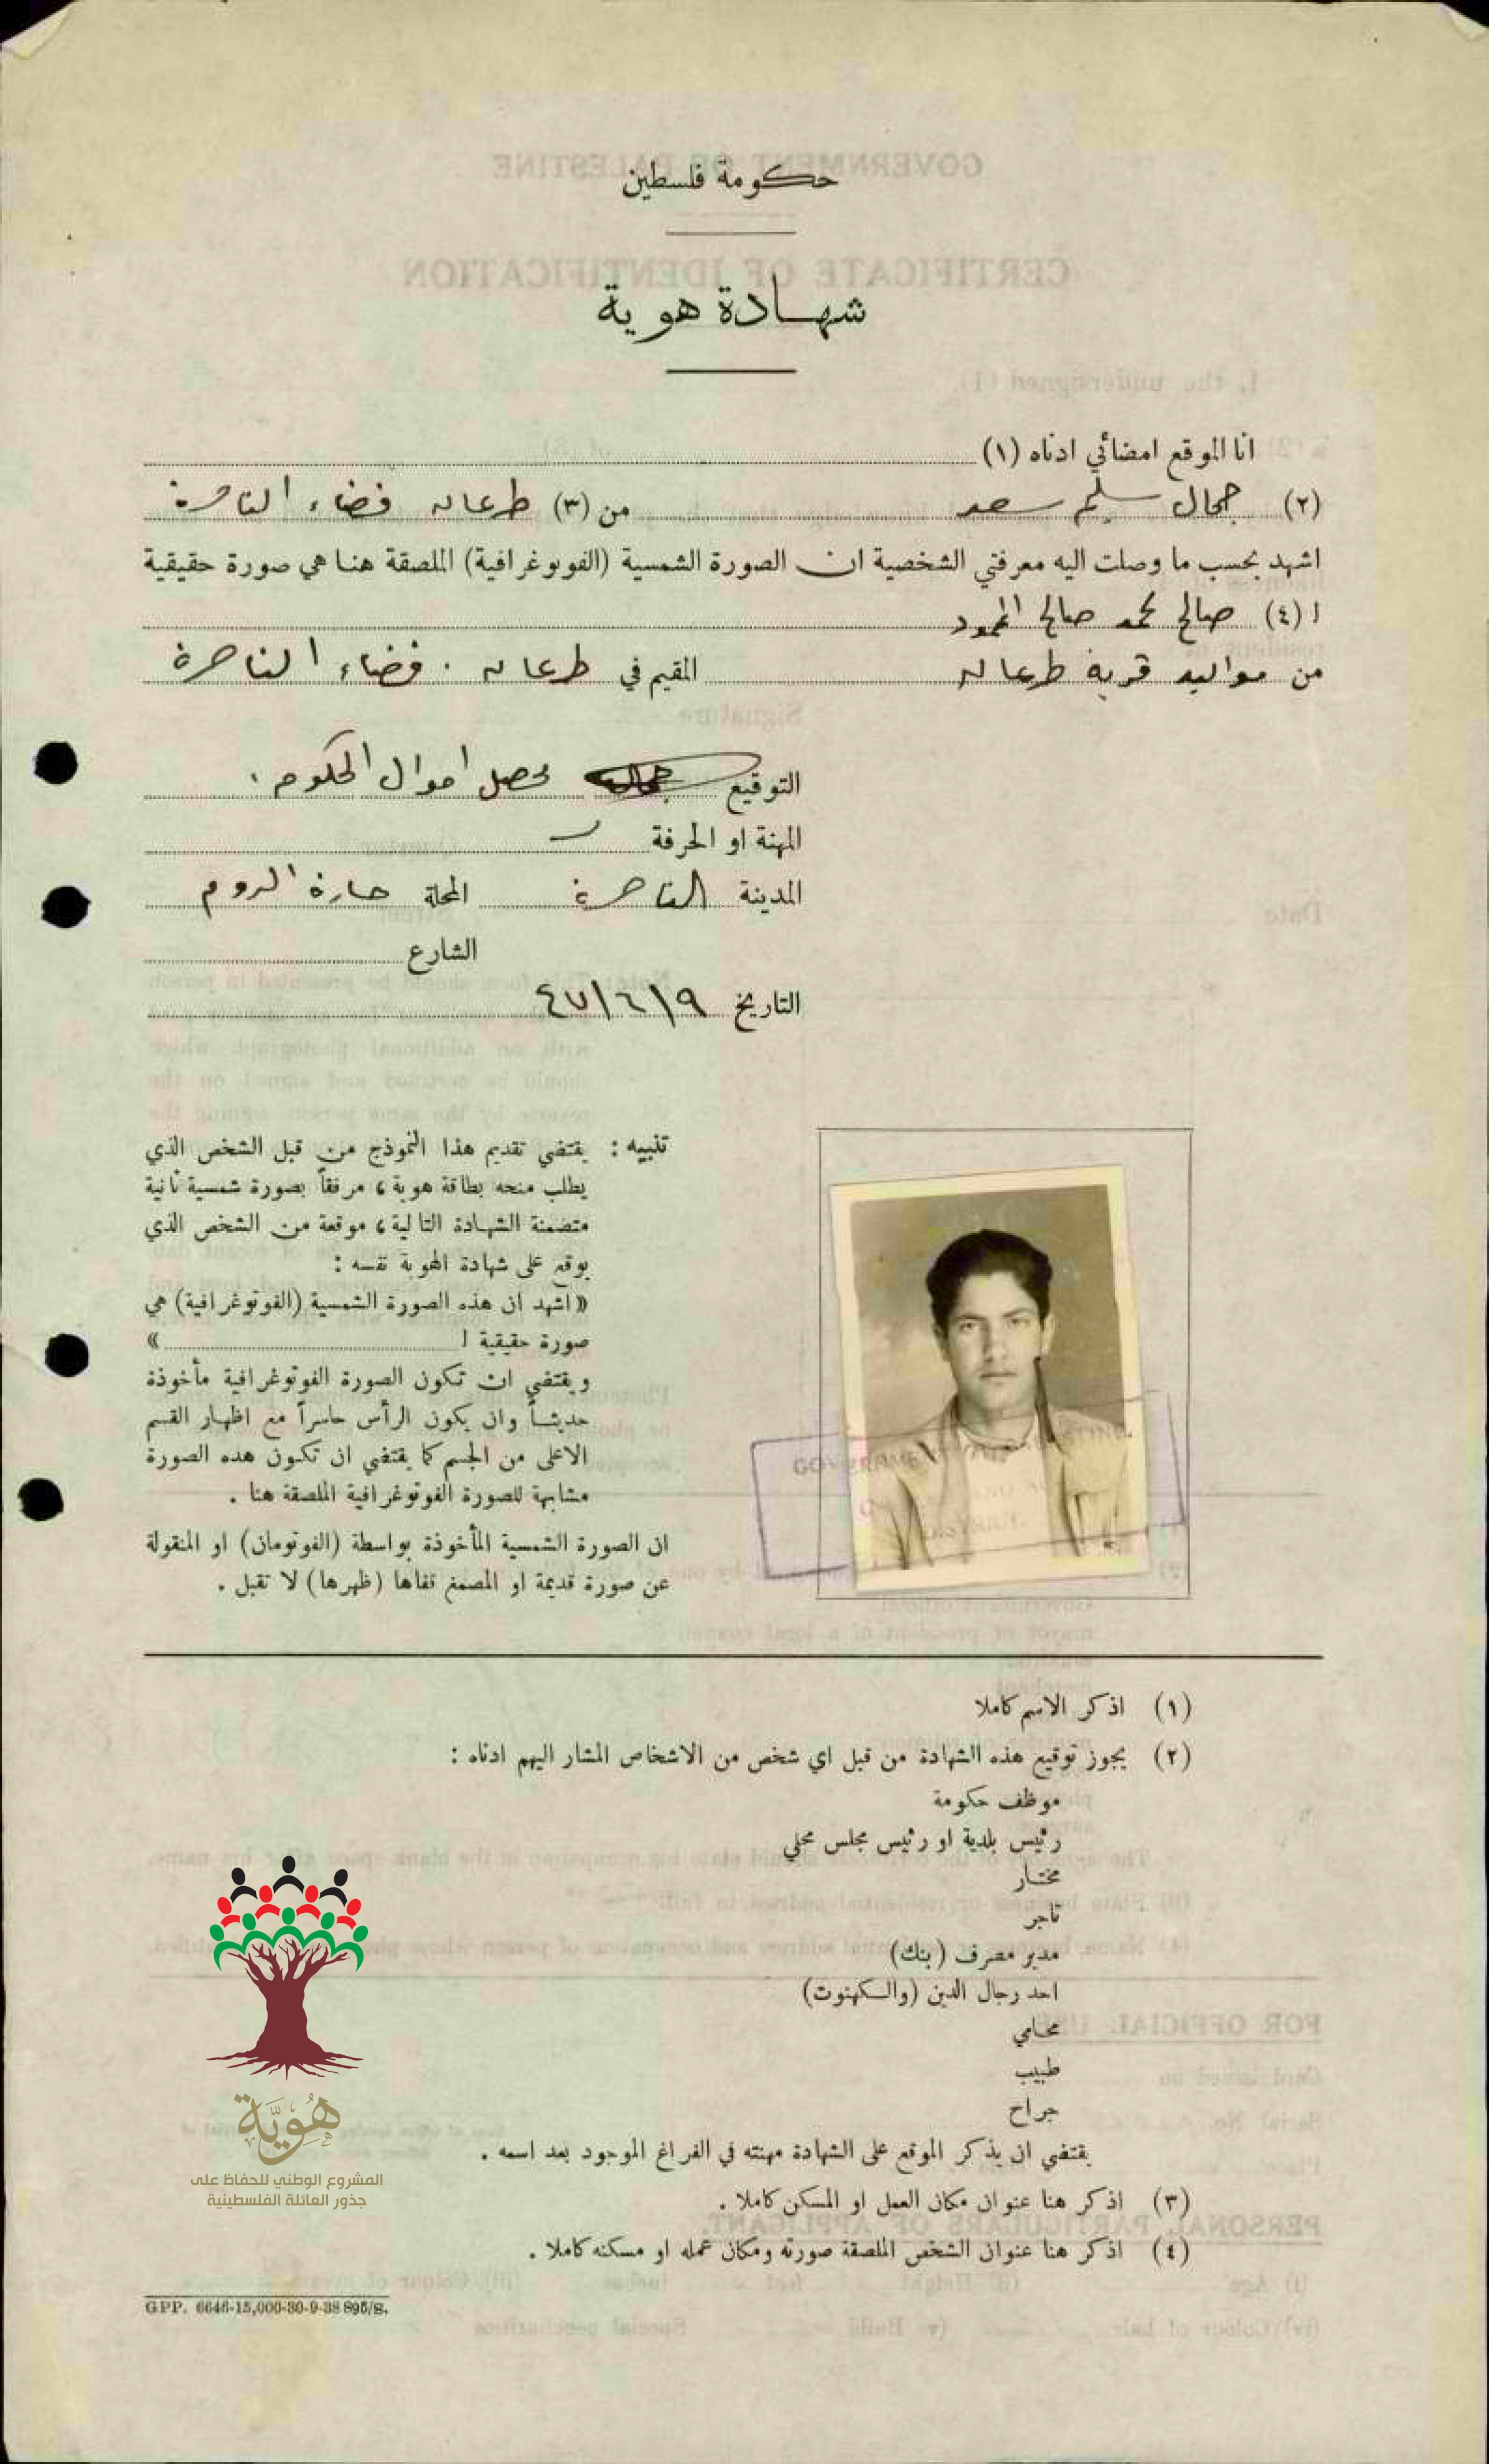 حكومة فلسطين
شهادة هوية
انا الموقع امضائي ادناه (١)
(٢) جمال سليم سعد من (٣) طرعان قضاء الناصرة
اشهد بحسب ما وصلت اليه معرفتي الشخصية ان الصورة الشمسية (الفوتوغرافية) الملصقة هنا هي صورة حقيقية
ل (٤) صالح محمد صالح المحمود
من مواليد قرية طرعان المقيم في طرعان . قضاء الناصرة
التوقيع محصل اموال الحكومة
المهنة او الحرفة
المدينة الناصرة المحلة حارة الروم
الشارع
التاريخ ٩/٦/٤٧
تنبيه : يقتضي تقديم هذا النموذج من قبل الشخص الذي
يطلب منحه بطاقة هوية ، مرفقاً بصورة شمسية ثانية
متضمنة الشهادة التالية ، موقعة من الشخص الذي
يوقع على شهادة الهوية نفسه :
« اشهد ان هذه الصورة الشمسية (الفوتوغرافية) هي
صورة حقيقية ل »
ويقتضي ان تكون الصورة الفوتوغرافية مأخوذة
حديثاً وان يكون الرأس حاسراً مع اظهار القسم
الاعلى من الجسم كما يقتضي ان تكون هذه الصورة
مشابهة للصورة الفوتوغرافية الملصقة هنا .
ان الصورة الشمسية المأخوذة بواسطة (الفوتومان) او المنقولة
عن صورة قديمة او المصمغ قفاها (ظهرها) لا تقبل .
GOVERNMENT OF PALESTINE
DISTRICT
(١) اذكر الاسم كاملا
(٢) يجوز توقيع هذه الشهادة من قبل اي شخص من الاشخاص المشار اليهم ادناه :
موظف حكومة
رئيس بلدية او رئيس مجلس محلي
مختار
تاجر
مدير مصرف (بنك)
احد رجال الدين (والكهنوت)
محامي
طبيب
جراح
يقتضي ان يذكر الموقع على الشهادة مهنته في الفراغ الموجود بعد اسمه .
(٣) اذكر هنا عنوان مكان العمل او المسكن كاملا .
(٤) اذكر هنا عنوان الشخص الملصقة صورته ومكان عمله او مسكنه كاملا .
هُوِيَّة
المشروع الوطني للحفاظ على
جذور العائلة الفلسطينية
GPP. 6646-15,000-30-9-38 895/S.